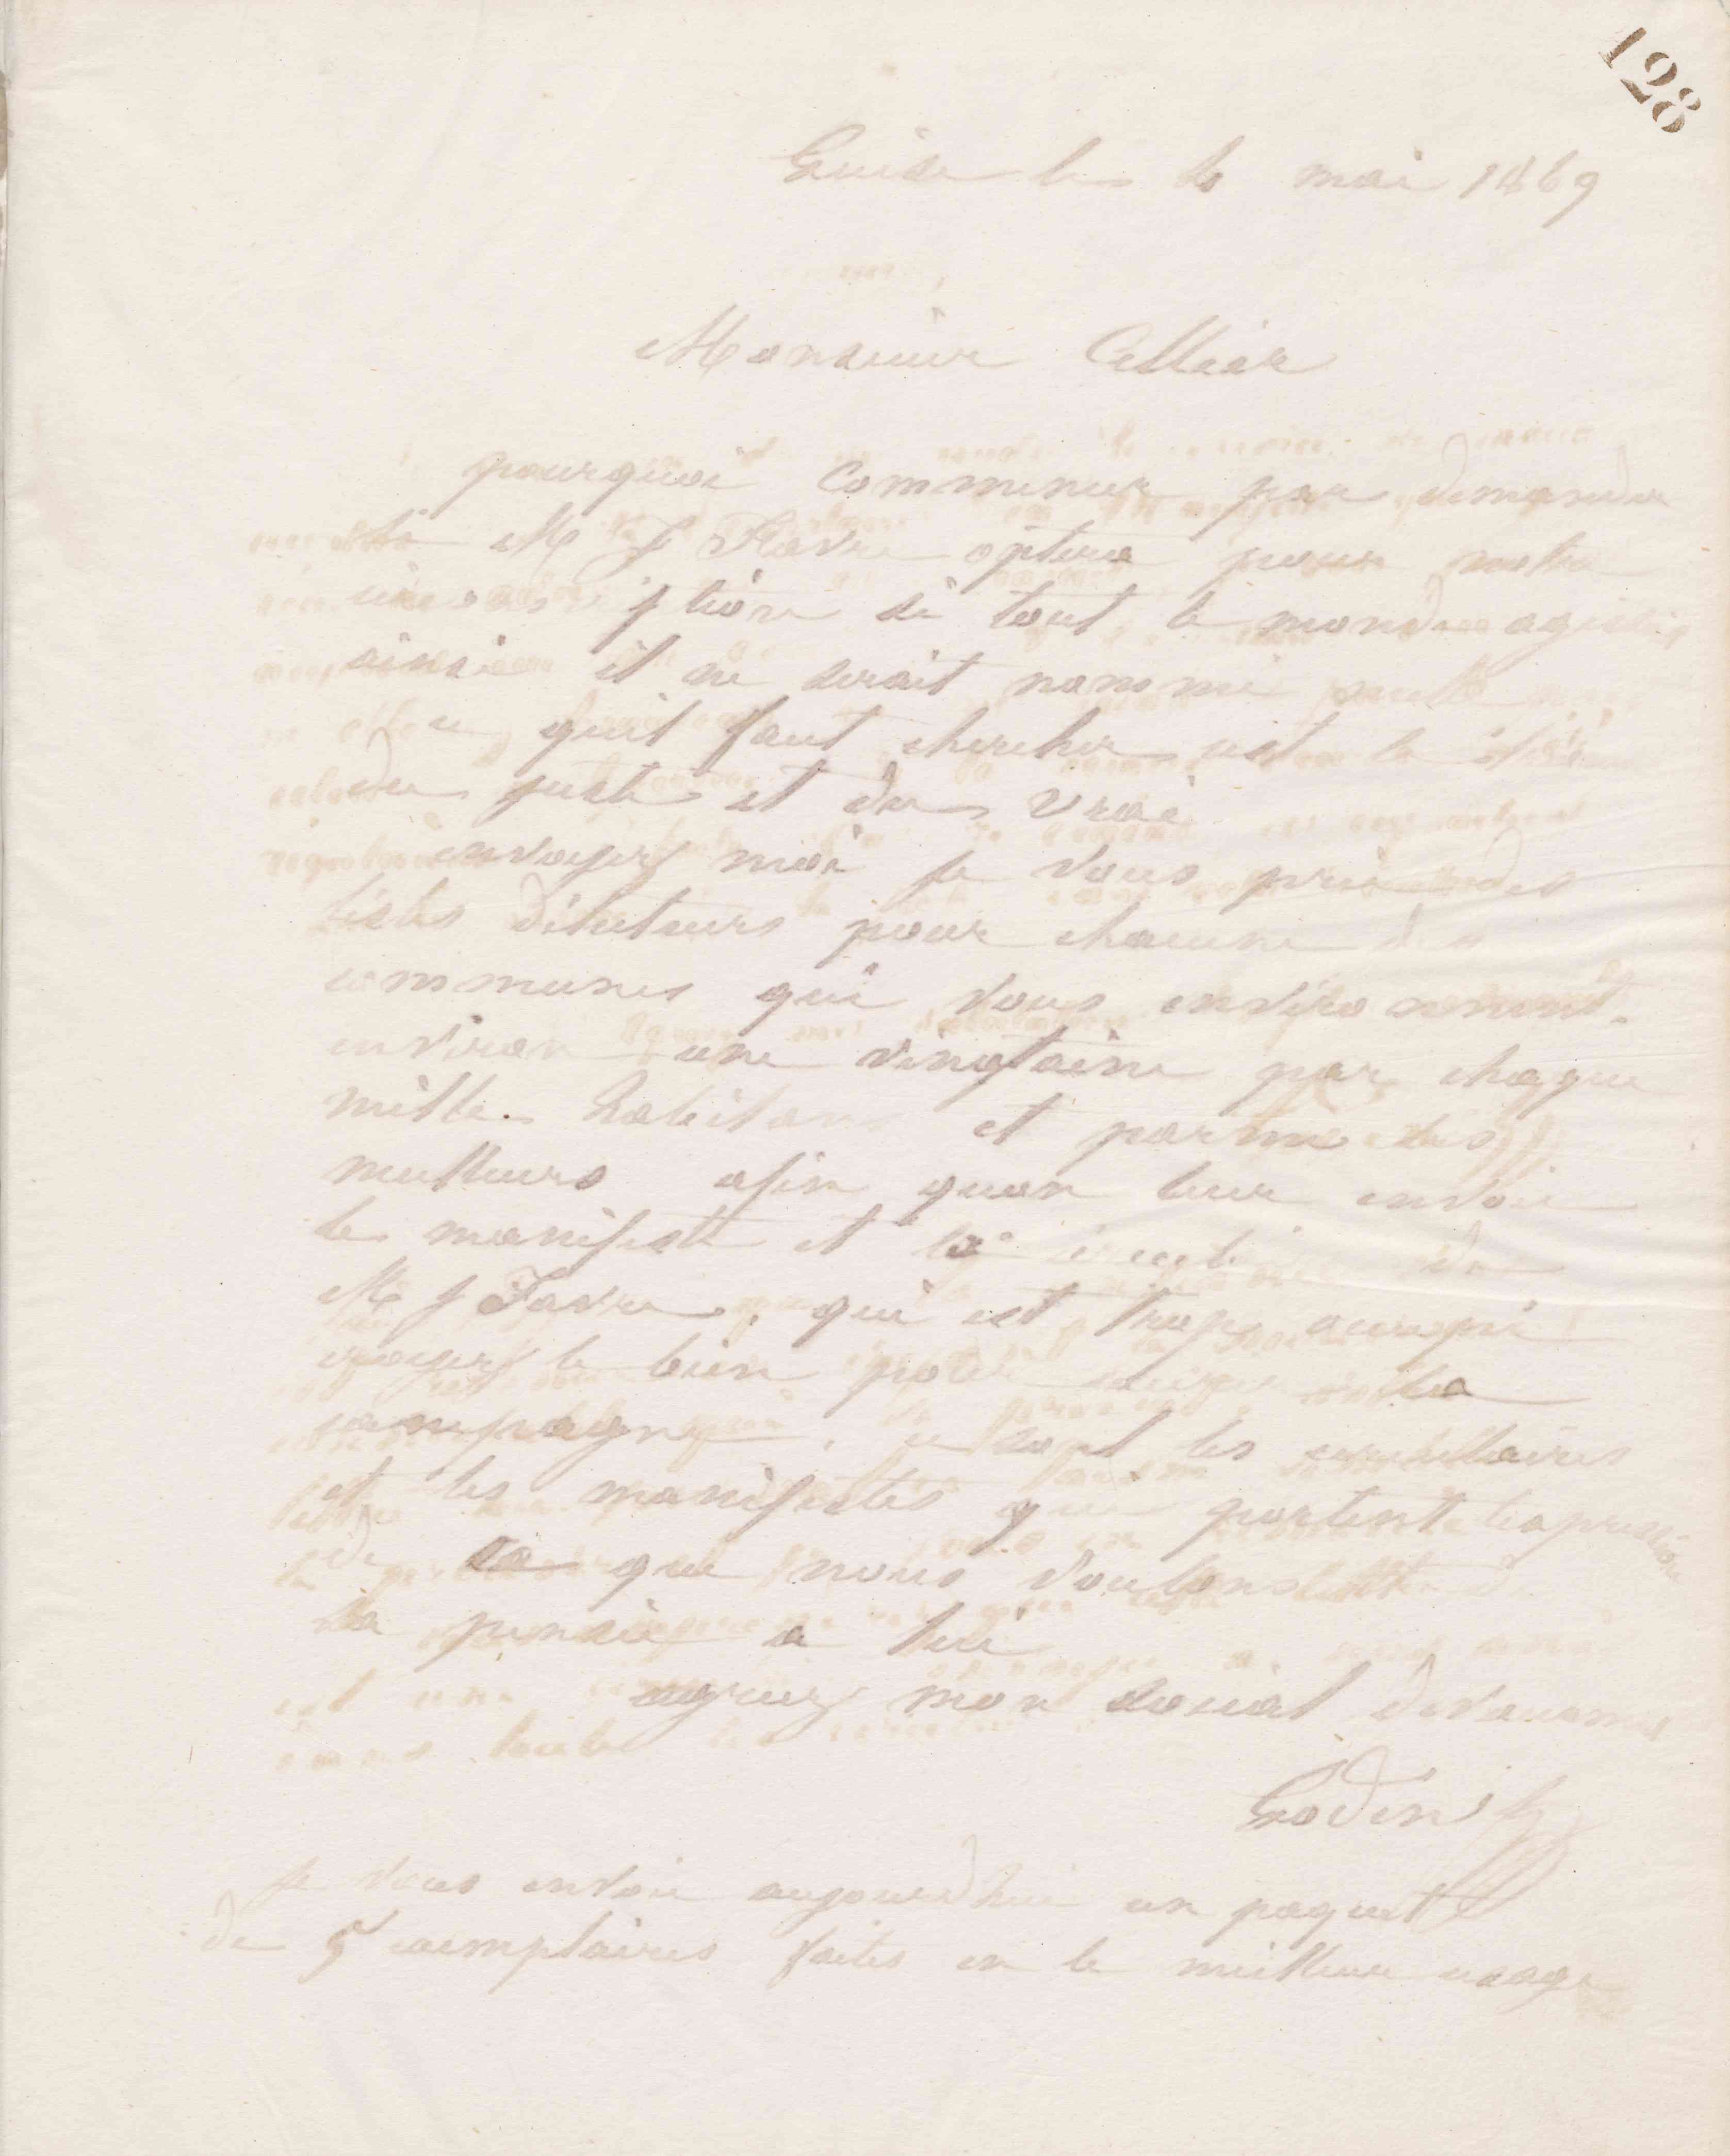 128
Guise le mai 1869
Monsieur Cellier
pourquoi commencer par demander
si M J Favre optera pour notre
si tout le monde
ainsi il ne serait nommé nulle
ce quil faut chercher cest le
du juste et du vrai
envoyez moi je vous prie des
listes délecteurs pour chacune des
communes qui vous environnent
environ une vingtaine par chaque
mille habitans et parmi les
meilleurs afin quon leur envoie
le manifeste et la de
M J Favre, qui est trop occupé
croyez le bien pour la
campagne, ce sont les
et les manifestes qui portent
de ce que nous voulons
sa pensée a lui
agreez mon
Godin
Je vous envoie aujourdhui un paquet
de 5 exemplaires faites en le meilleur usage